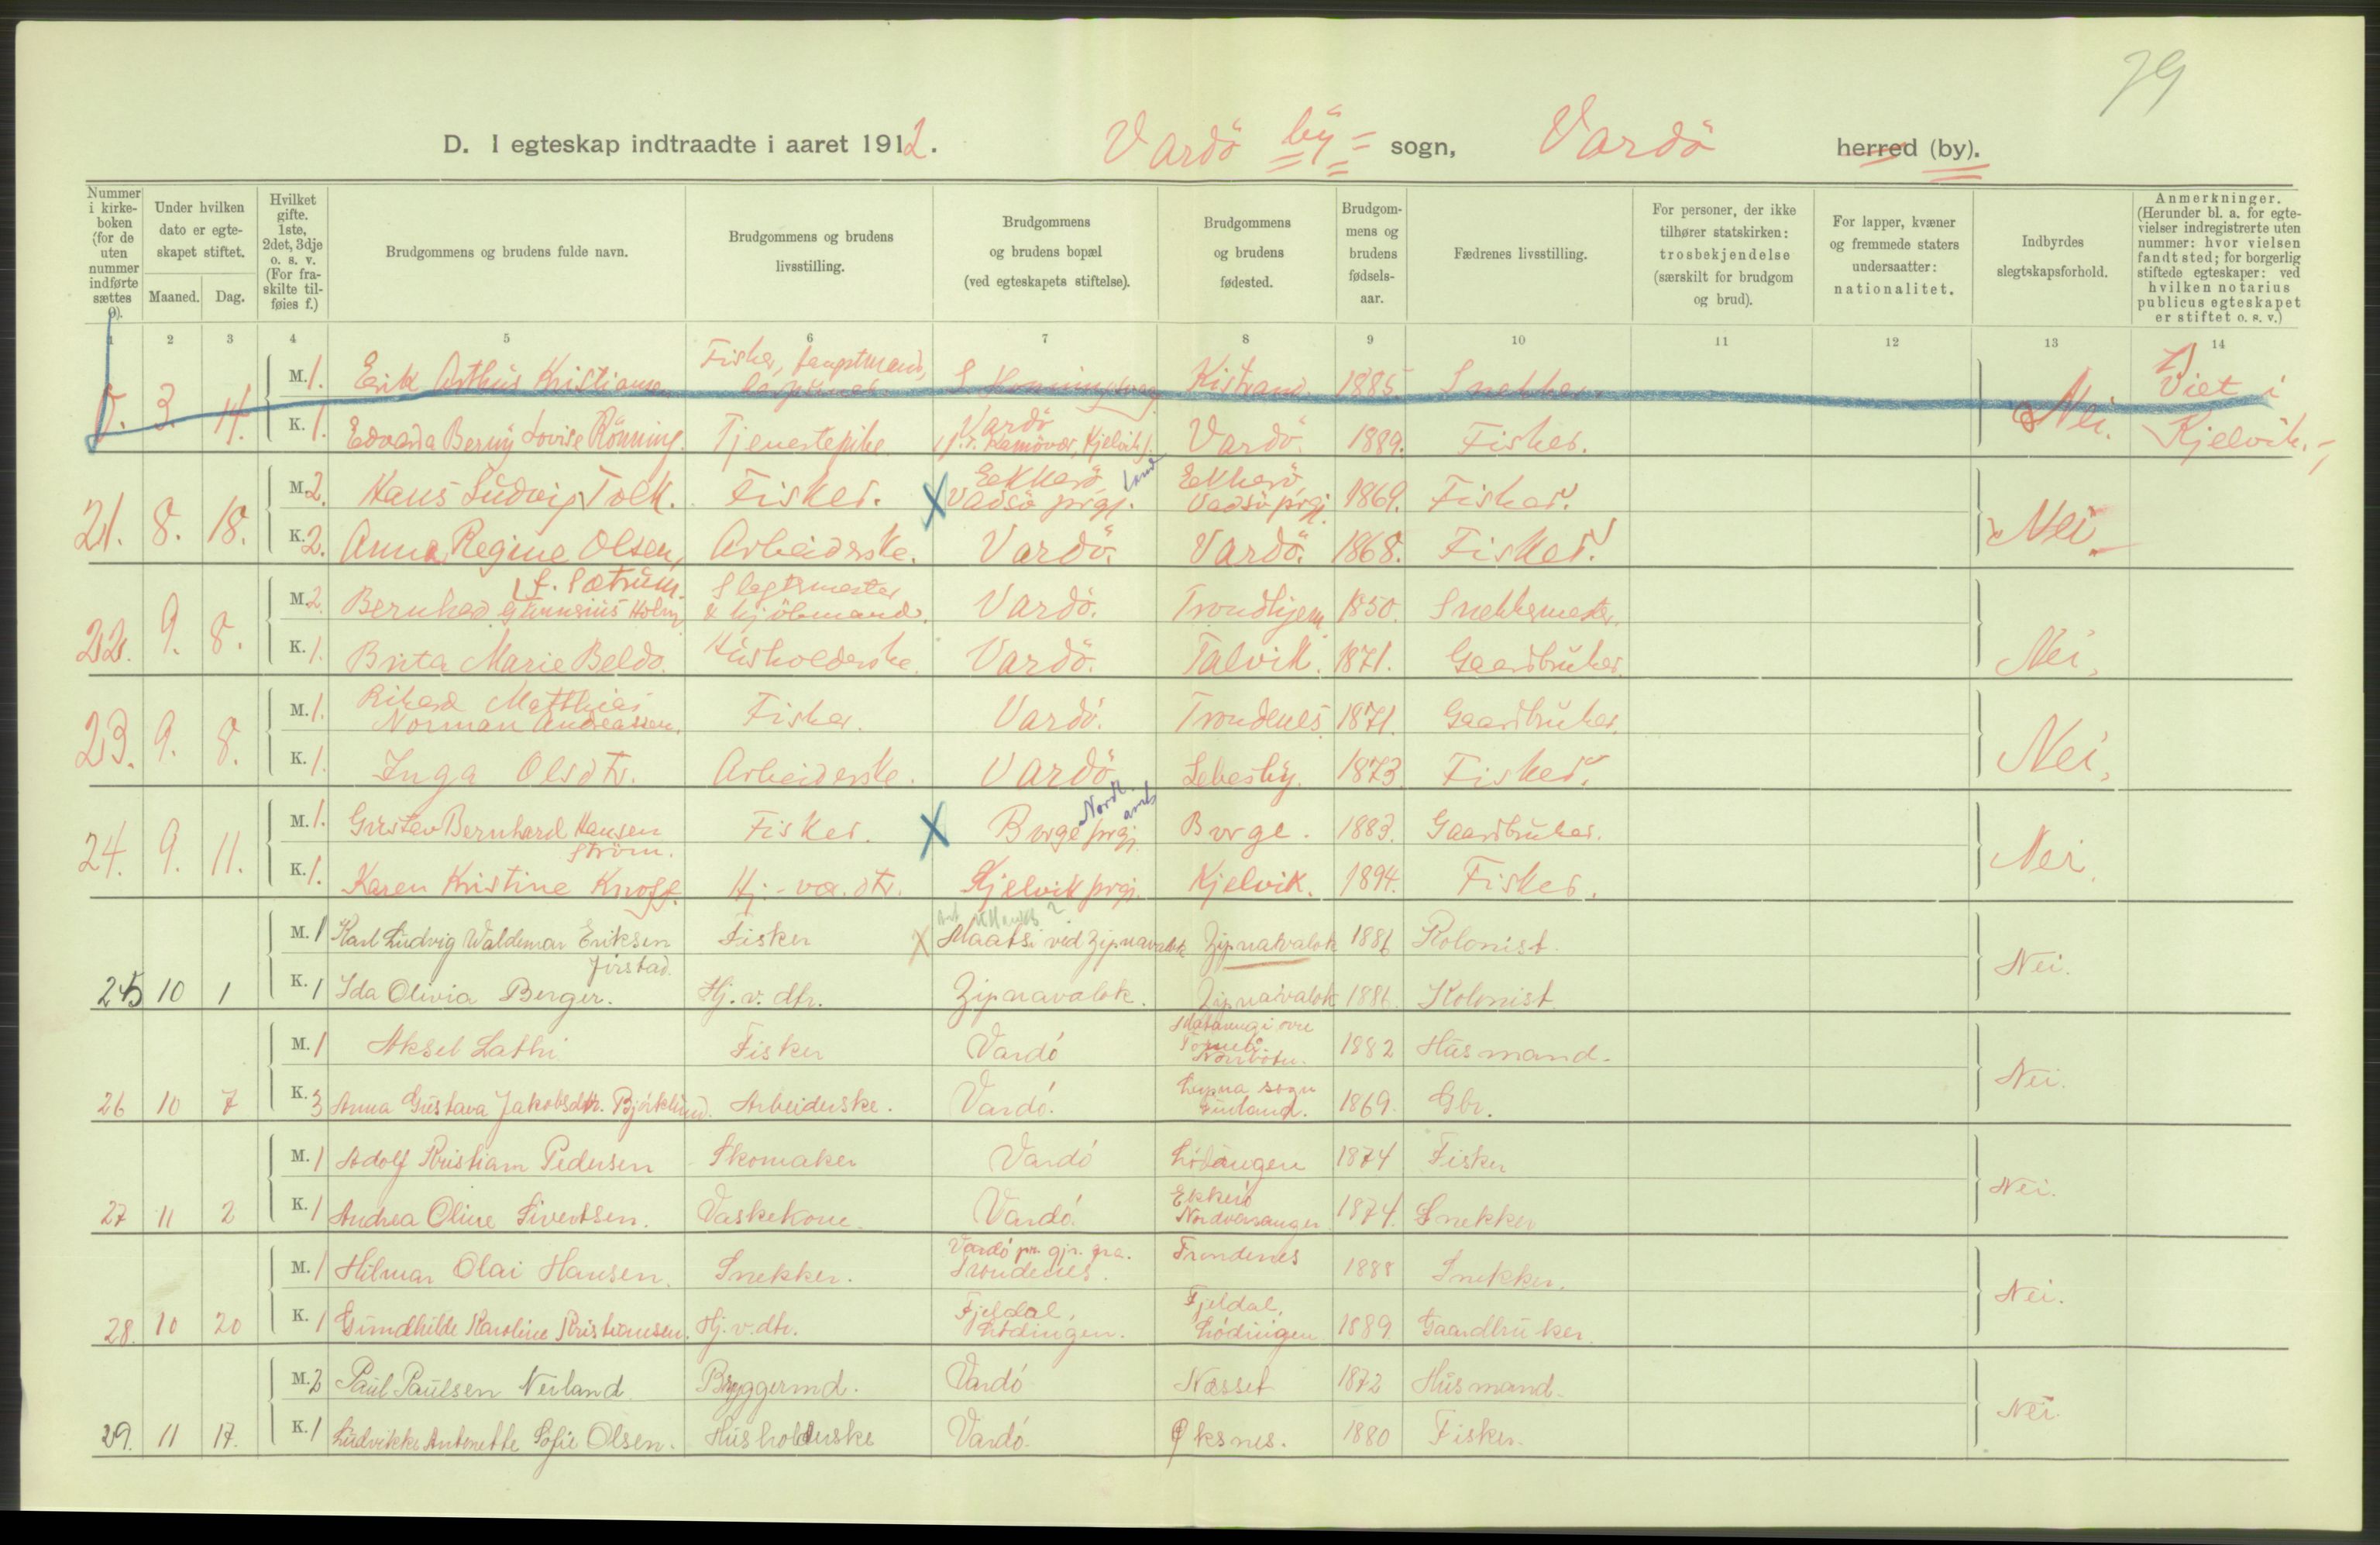 79
D. I egteskap indtraadte i aaret 1912. Vardö by = sogn, Vardö herred (by).
Nummer i kirkeboken (for de uten nummer indførte sættes 0). Under hvilken dato er egteskapet stiftet. Maaned. Dag. Hvilket gifte. 1ste, 2det, 3dje o. s. v. (For fraskilte tilføies f.) Brudgommens og brudens fulde navn. Brudgommens og brudens livsstilling. Brudgommens og brudens bopæl (ved egteskapets stiftelse). Brudgommens og brudens fødested. Brudgommens og brudens fødselsaar. Fædrenes livsstilling. For personer, der ikke tilhører statskirken: trosbekjendelse (særskilt for brudgom og brud). For lapper, kvæner og fremmede staters undersaatter: nationalitet. Indbyrdes slegtskapsforhold. Anmerkninger. (Herunder bl. a. for egtevielser indregistrerte uten nummer: hvor vielsen fandt sted; for borgerlig stiftede egteskaper: ved hvilken notarius publicus egteskapet er stiftet o. s. v.)
1 2 3 4 5 6 7 8 9 10 11 12 13 14
0. 3. 14. M. 1. Erik Arthur Kristiansen Fisker, Kistrand 1885 Snekker. Nei. Viet i
K. 1. Edvarda Berny Lovise Rönning. Tjenestepike Vardö (p.t. Kamövær, Kjelvik). Vardö. 1889. Fisker. Kjelvik.
21. 8. 18. M. 2. Hans Ludvig Tolk. Fisker. Ekkerö Vadsö prgj. land Ekkerö Vadsö prgj. 1869. Fisker. Nei
K. 2. Anna Regine Olsen, Arbeiderske. Vardö. Vardö. 1868. Fisker.
f. Sætrum.
22. 9. 8. M. 2. Bernhard Gunnerius Holm Slagtermester & kjöbmand. Vardö. Trondhjem 1850. Snekkermester. Nei.
K. 1. Brita Marie Beldo. Husholderske. Vardö. Talvik. 1871. Gaardbruker.
23. 9. 8. M. 1. Rikard Matthias Norman Andreassen. Fisker. Vardö. Trondenes 1871. Gaardbruker. Nei.
K. 1. Inga Olsdtr. Arbeiderske. Vardö Lebesby. 1873 Fisker.
24. 9. 11. M. 1. Gustav Bernhard Hansen Ström. Fisker. Borge prgj. Nordl. amt Borge. 1883. Gaardbruker. Nei.
K. 1. Karen Kristine Knoff. Hj.-væ. dtr. Kjelvik prgj. Kjelvik. 1894. Fisker.
25 10 1 M. 1 Karl Ludvig Waldemar Eriksen Jirstad. Fisker Maatsi ved Zipnavalok Zipnavalok 1886 Kolonist. Nei.
K. 1 Ida Olivia Berger. Hj. v. dtr. Zipnavalok. Zipnavalok 1886. Kolonist
26 10 7 M. 1 Aksel Lathi Fisker Vardö Matarengi övre Torneå Norrboten. 1882 Husmand. Nei.
K. 3 Anna Gustava Jakobsdtr. Björklund. Arbeiderske. Vardö. sogn Finland. 1869. Gbr.
27 11 2 M. 1 Adolf Kristian Pedersen Skomaker Vardö Lödingen 1874 Fisker Nei.
K. 1 Andrea Oline Sivertsen. Vaskekone. Vardö. Ekkerö Nordvaranger. 1874. Snekker
28. 10 20 M. 1 Hilmar Olai Hansen. Snekker. Vardö pr. gjr. fra. Trondenes. Trondenes 1888 Snekker. Nei.
K. 1 Gundhilde Karoline Kristiansen. Hj. v. dtr. Fjeldal, Lödingen. Fjeldal, Lödingen 1889. Gaardbruker.
29. 11 17. M. 2 Paul Paulsen Neiland. Bryggermd. Vardö Næsset 1872 Husmand. Nei
K. 1 Ludvikke Antonette Sofie Olsen. Husholderske Vardö. Øksnes. 1880 Fisker.